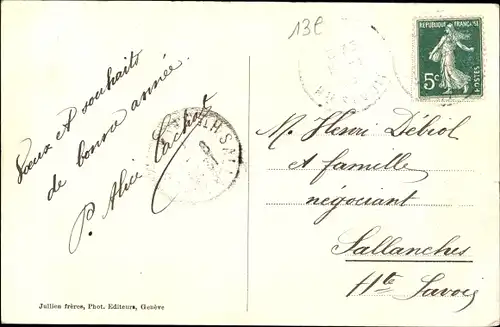 13E
RÉPUBLIQUE FRANÇAISE
5c
POSTES
Vœux et souhaits
de bonne année.
P. Alice Cachat
M. Henri Débiol
et famille
négociant
Sallanches
Hte Savoie
Jullien frères, Phot. Editeurs, Genève